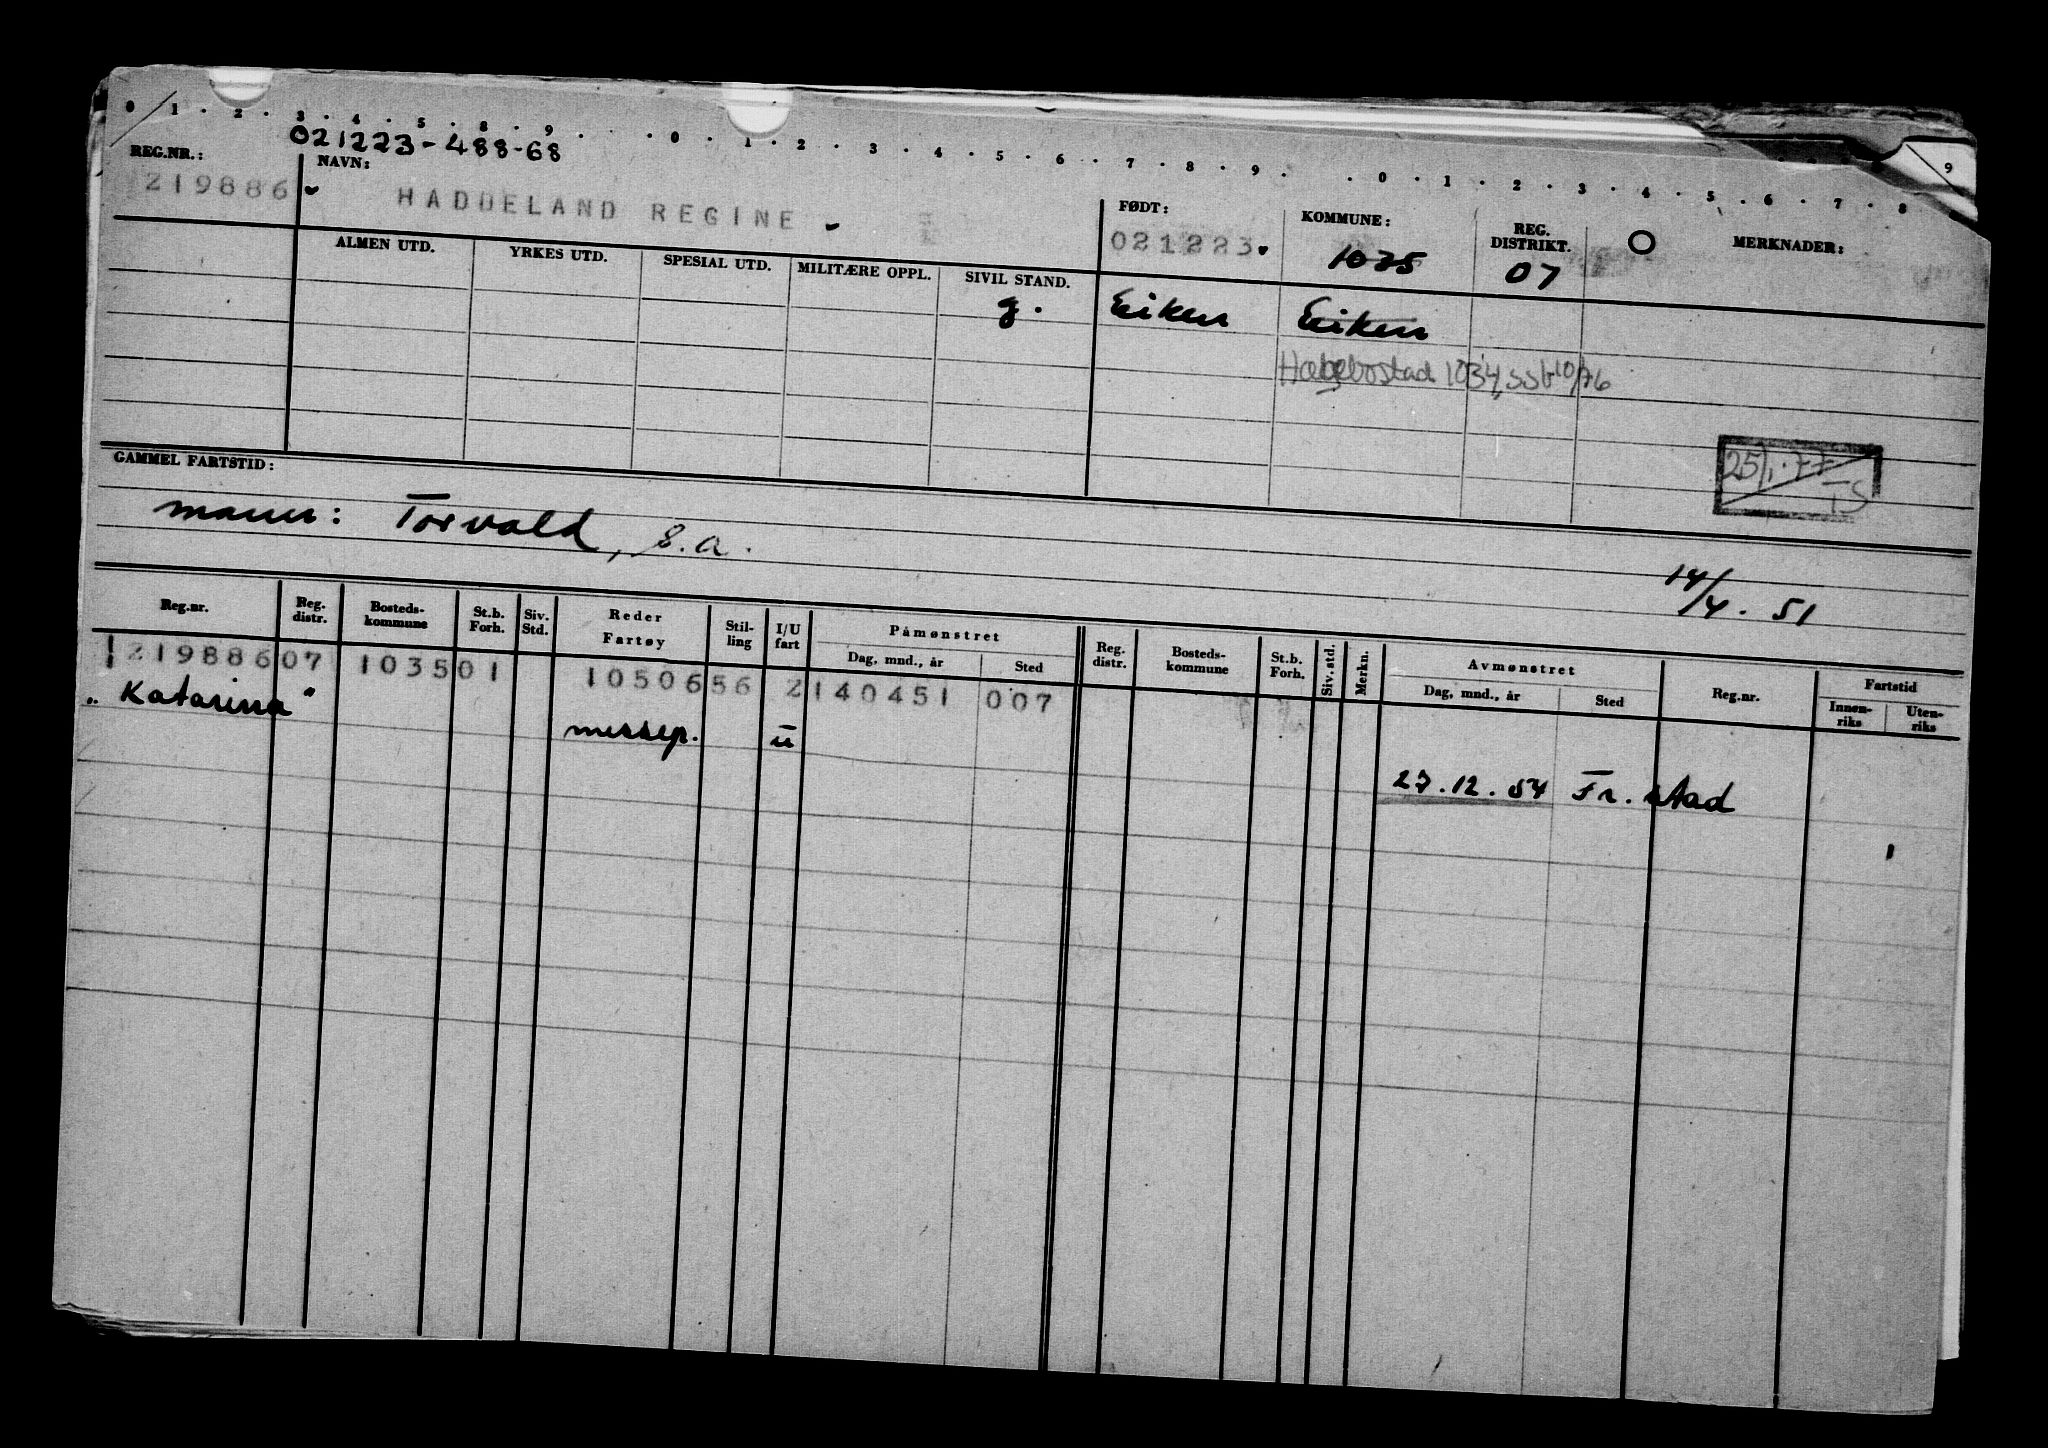 0 1 · 2 · 3 · 4 · 5 · 8 · 9 · · 0 · 1 · 2 · 3 · 4 · 5 · 6 · 7 · 8 · 9 · · 0 · 1 · 2 · 3 · 4 · 5 · 6 · 7 · 8 9
021223-488-68
REG.NR.: NAVN: FØDT: KOMMUNE: REG. DISTRIKT. O MERKNADER:
219886 HADDELAND REGINE 021223 1035 07
ALMEN UTD. YRKES UTD. SPESIAL UTD. MILITÆRE OPPL. SIVIL STAND.
g. Eiken Eiken
Hægebostad 1034, SSb 10/76
25/1.77
TS
GAMMEL FARTSTID:
mann: Torvald, s.a.
14/4. 51
Reg.nr. Reg. distr. Bosteds- kommune St.b. Forh. Siv. Std. Reder Fartøy Stil- ling I/U fart Påmønstret Dag, mnd., år Sted Reg. distr. Bosteds- kommune St.b. Forh. Siv. std. Merkn. Avmønstret Dag, mnd., år Sted Reg.nr. Fartstid Innen- riks Uten- riks
219886 07 1035 01 10506 56 2 140451 007
"Katarina" messep. u
27.12.54 Fr.stad